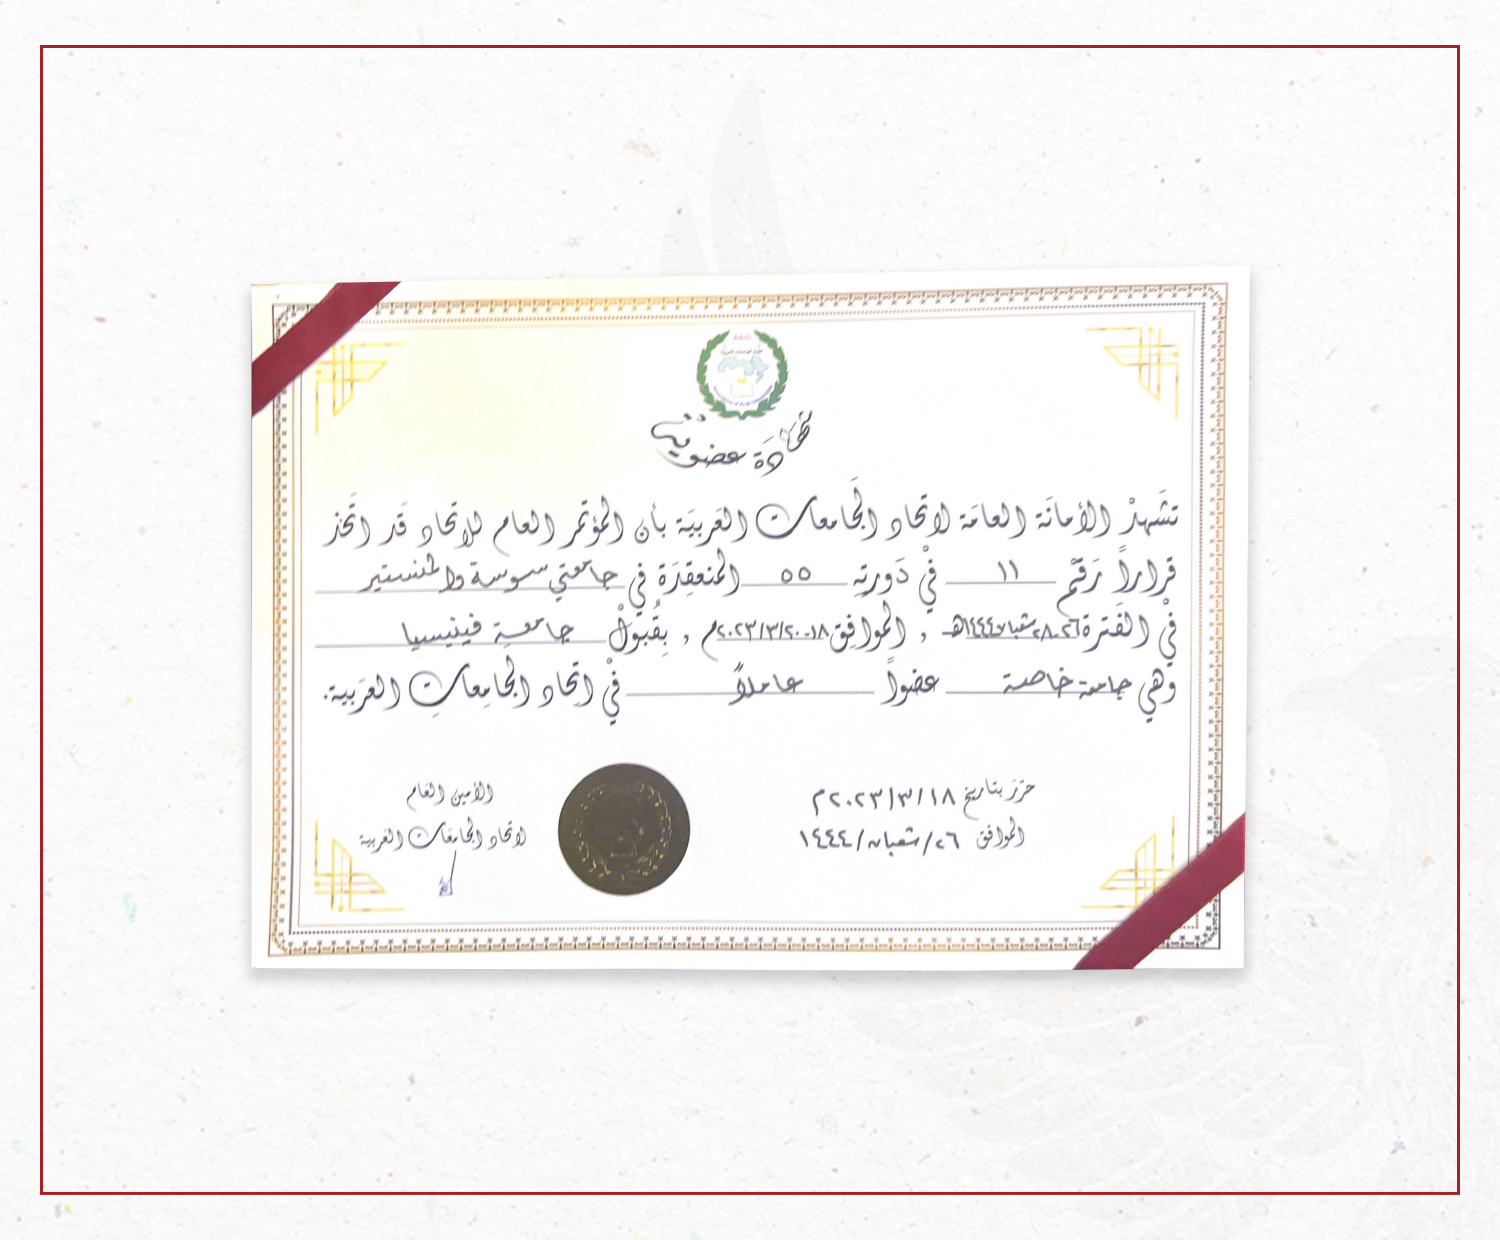 شهادة عضوية
تشهد الأمانة العامة لاتحاد الجامعات العربية بأن المؤتمر العام للاتحاد قد اتخذ
قراراً رقم ١١ في دورته ٥٥ المنعقدة في جامعتي سوسة والمنستير
في الفترة ٢٦-٢٨ شعبان ١٤٤٤هـ الموافق ١٨-٢٠/٣/٢٠٢٣م , بقبول جامعة فينيسيا
وهي جامعة خاصة عضواً عاملاً في اتحاد الجامعات العربية.
حرر بتاريخ ١٨/٣/٢٠٢٣م
الموافق ٢٦/شعبان/١٤٤٤
الأمين العام
لاتحاد الجامعات العربية